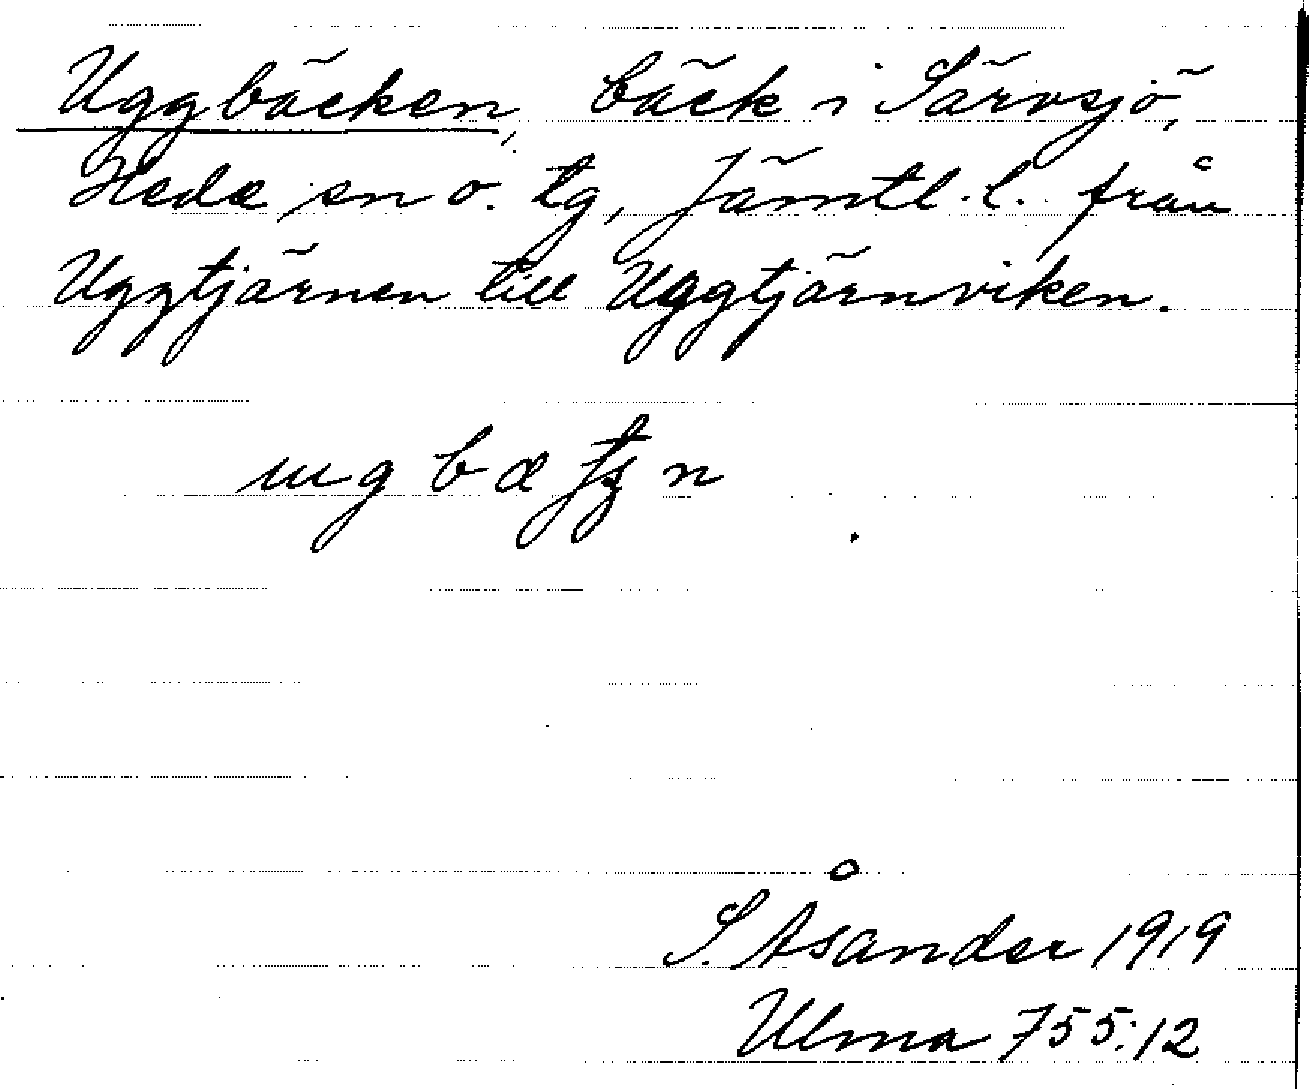 Uggbäcken, bäck i Särvsjö,
Hede sn o. tg, Jämtl. l. från
Uggtjärnen till Uggtjärnviken.
S. Åsander 1919
Ulma 755:12